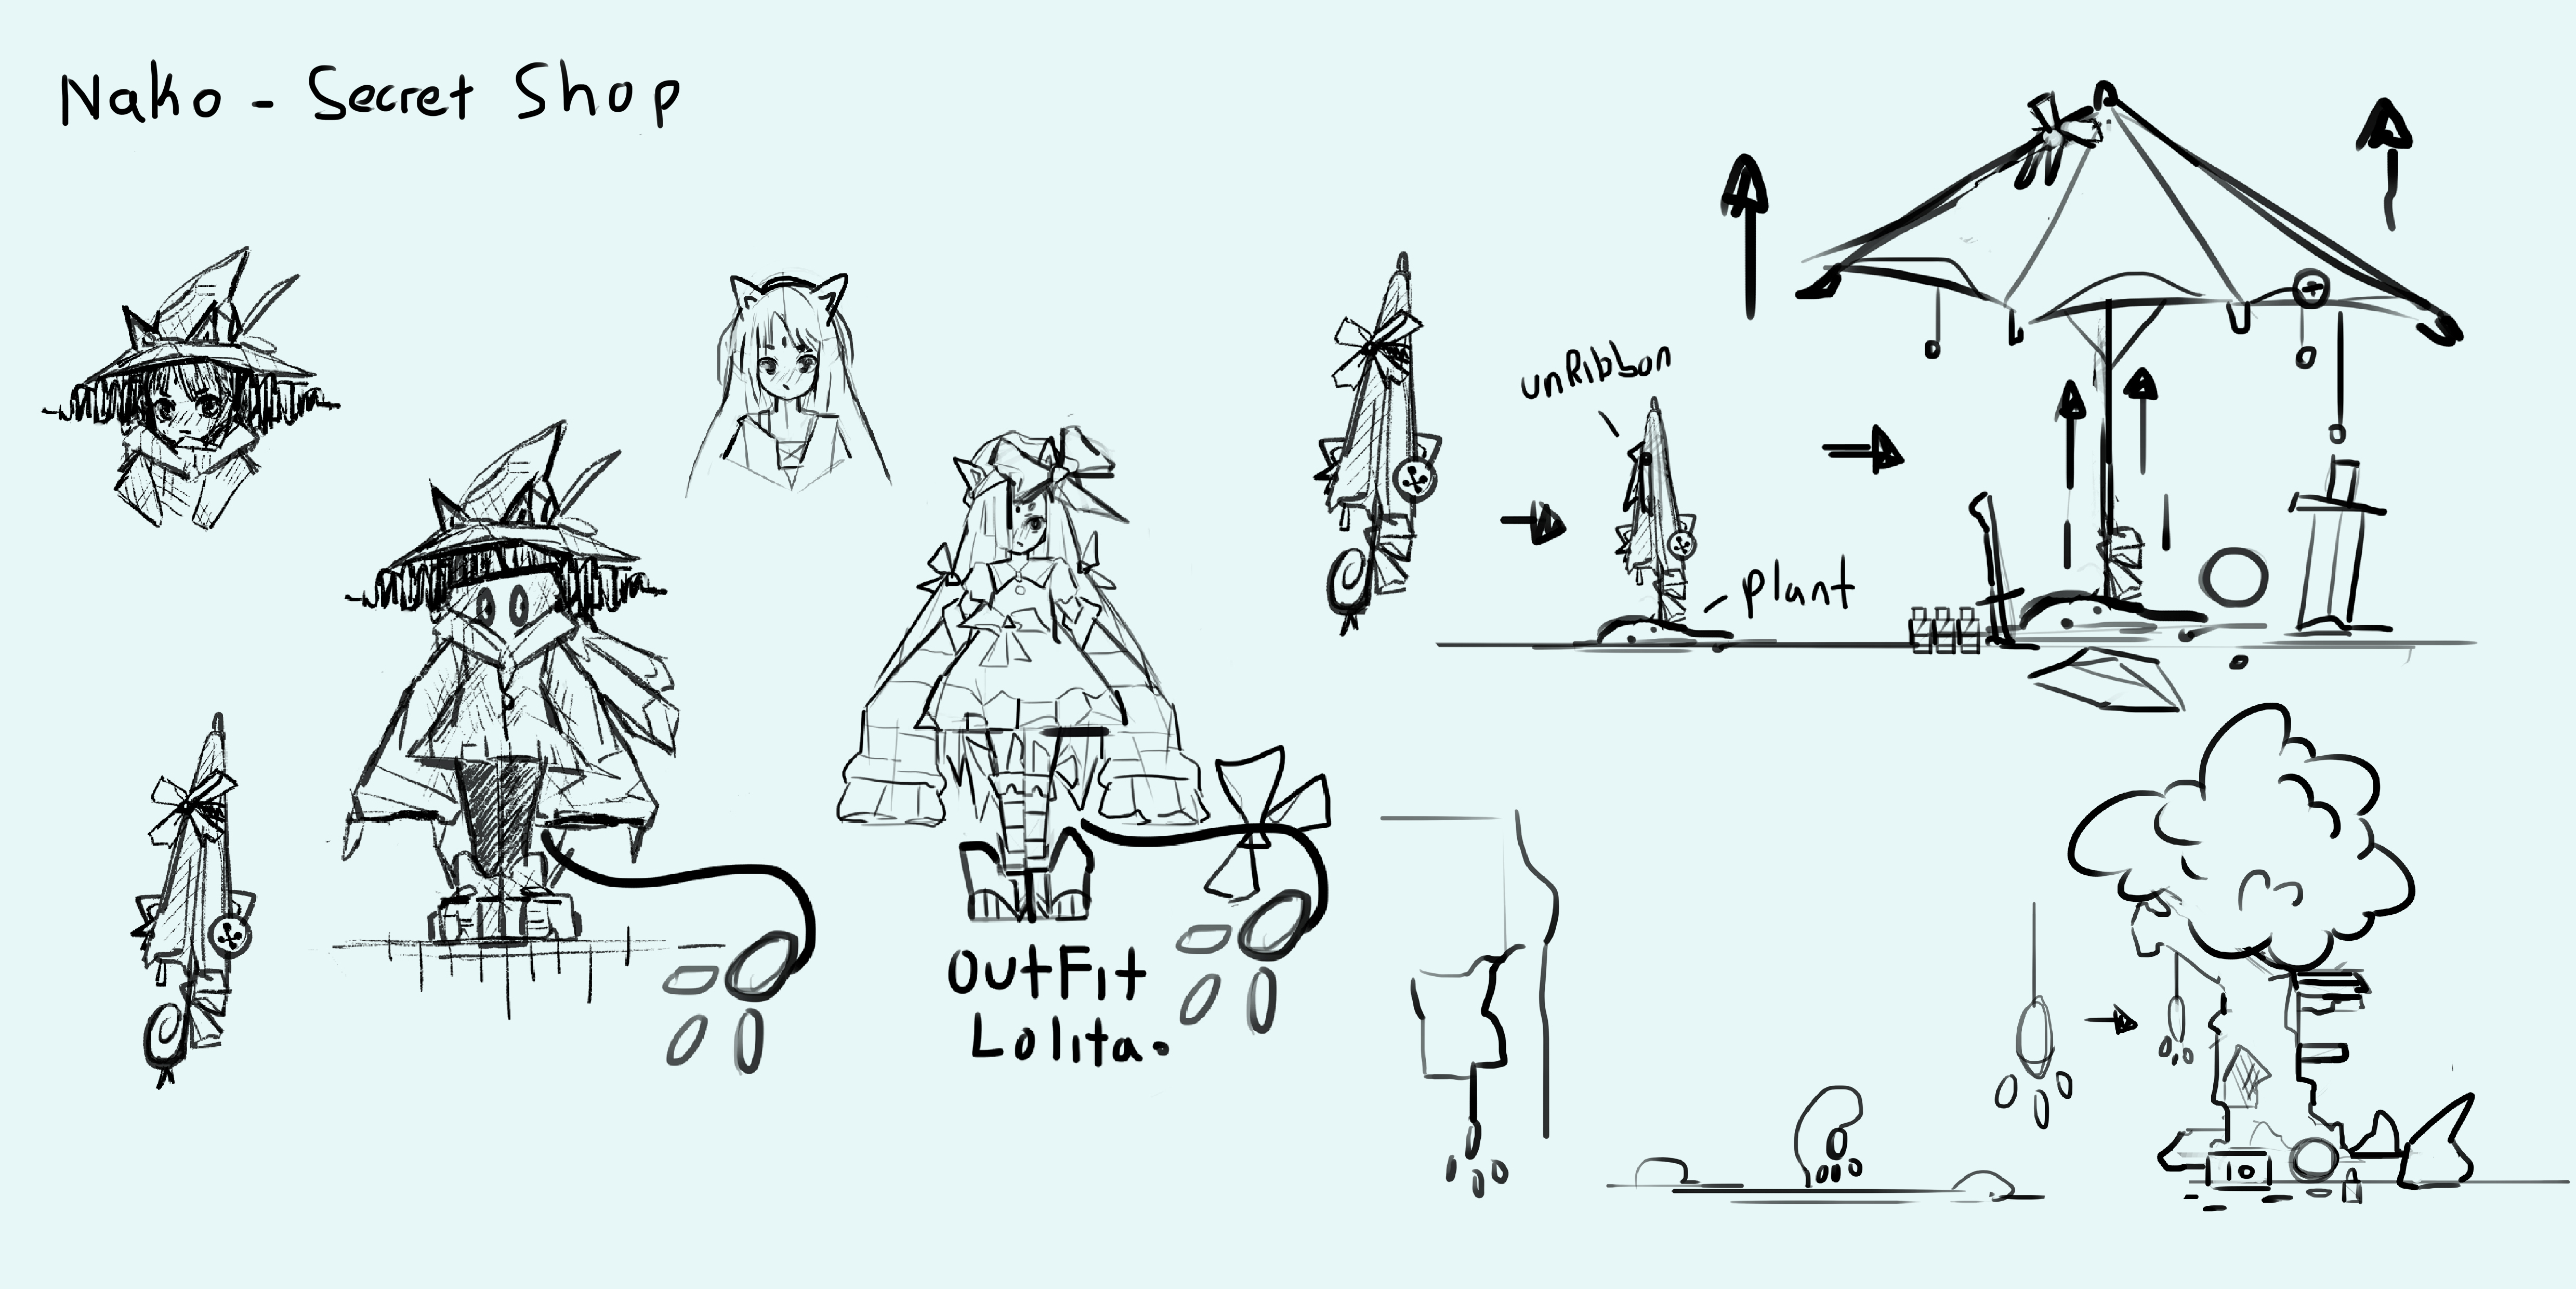 Nako - Secret Shop
unRibbon
plant
OutFit
Lolita.
10